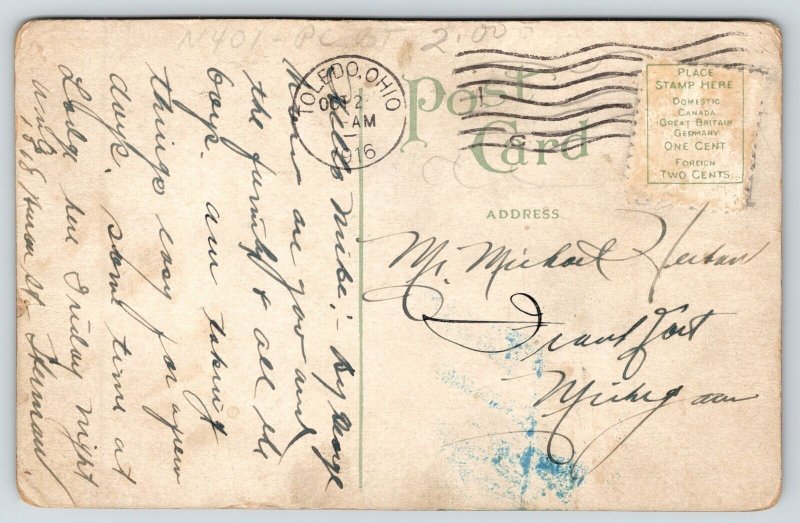 M401-PC ST 2.00
TOLEDO, OHIO
OCT 2
1 AM
1916
Post
Card
PLACE
STAMP HERE
DOMESTIC
CANADA
GREAT BRITAIN
GERMANY
ONE CENT
FOREIGN
TWO CENTS.
ADDRESS
Mr. Michael
Frankfort
Michigan
Hello Mike:- By George
how are you and
the family & all the
boys. am taking
things easy for a few
days. some time at
Lodge here Friday night
1818 Huron St. Herman